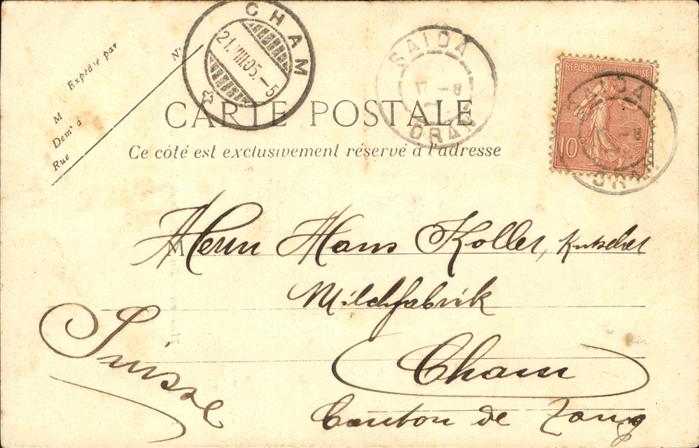 CHAM
21.VIII.05.-5
SAIDA
ORAN
REPUBLIQUE FRANCAISE
10
SAIDA
ORAN
Expédié par
N°
M
Demt à
Rue
CARTE POSTALE
Ce côté est exclusivement réservé à l'adresse
M
Herrn Hans Koller, Kutscher
Milchfabrik
Suisse
Cham
Canton de Zoug